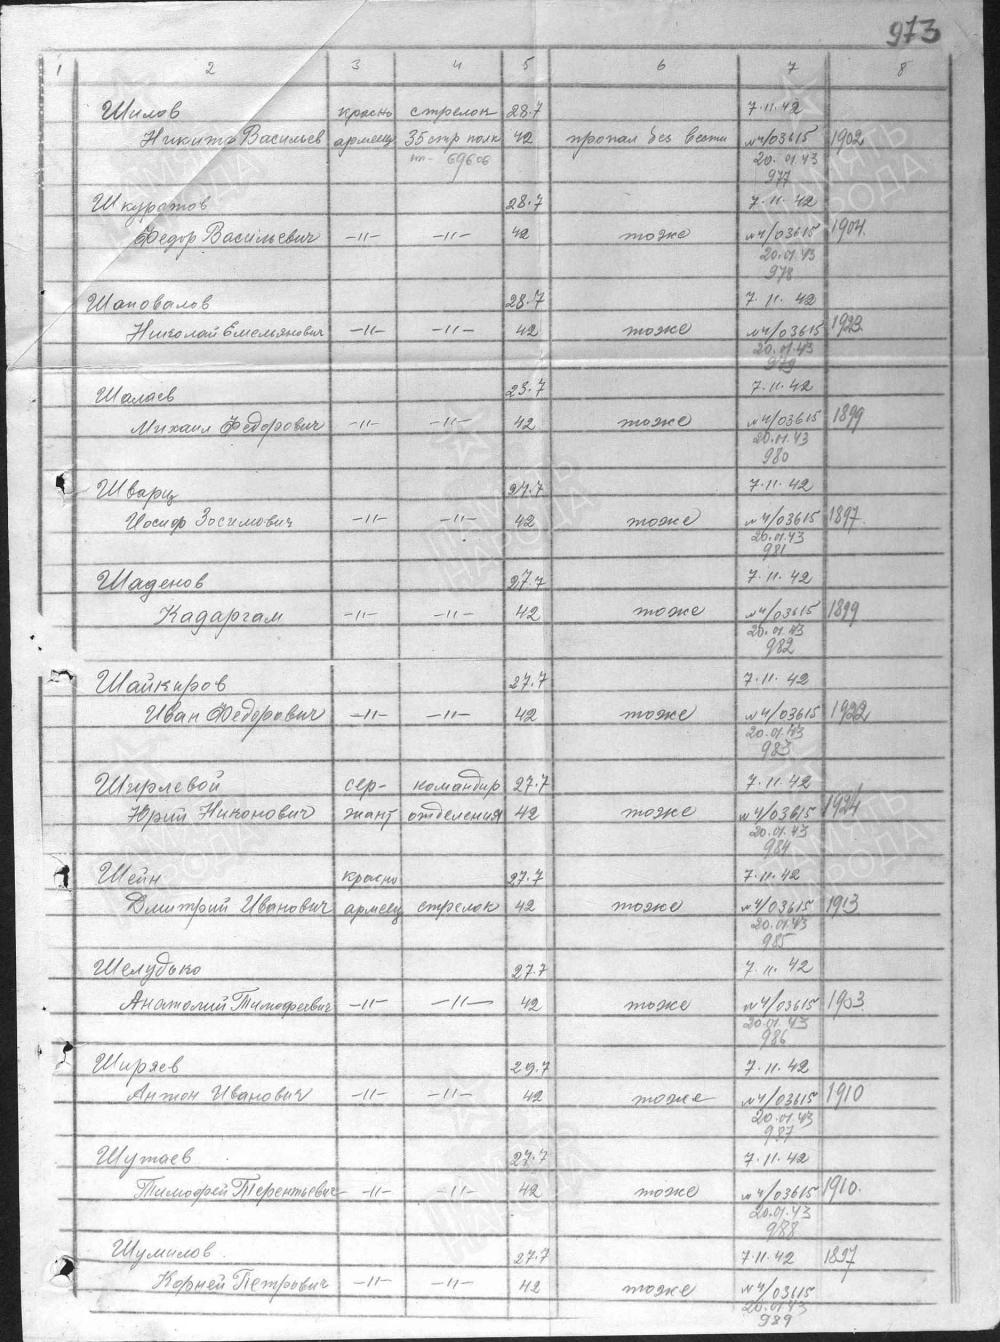 973
1 2 3 4 5 6 7 8
Шилов красно стрелок 28.7 7.11.42
Никита Васильев армеец 35 стр полк 42 пропал без вести №4/03615 1902
20.01.43
977
Шкуратов 28.7 7.11.42
Федор Васильевич -〃- -〃- 42 тоже №4/03615 1904.
20.01.43
978
Шаповалов 28.7 7.11.42
Николай Емельянович -〃- -〃- 42 тоже №4/03615 1923.
20.01.43
979
Шалаев 23.7 7.11.42
Михаил Федорович -〃- -〃- 42 тоже №4/03615 1899
20.01.43
980
Шварц 27.7 7.11.42
Иосиф Зосимович -〃- -〃- 42 тоже №4/03615 1897.
20.01.43
981
Шаденов 27.7 7.11.42
Кадаргам -〃- -〃- 42 тоже №4/03615 1899
20.01.43
982
Шайкиров 27.7 7.11.42
Иван Федорович -〃- -〃- 42 тоже №4/03615 1922
20.01.43
983
Ширлевой сер- командир 27.7 7.11.42
Юрий Никонович жант отделения 42 тоже №4/03615 1924
20.01.43
984
Шейн красно 27.7 7.11.42
Дмитрий Иванович армеец стрелок 42 тоже №4/03615 1913
20.01.43
985
Шелудько 27.7 7.11.42
Анатолий Тимофеевич -〃- -〃- 42 тоже №4/03615 1903.
20.01.43
986
Ширяев 29.7 7.11.42
Антон Иванович -〃- -〃- 42 тоже №4/03615 1910
20.01.43
987
Шутаев 27.7 7.11.42
Тимофей Терентьевич -〃- -〃- 42 тоже №4/03615 1910.
20.01.43
988
Шумилов. 27.7 7.11.42 1897
Корней Петрович -〃- -〃- 42 тоже №4/03615
20.01.43
989
ПАМЯТЬ НАРОДА